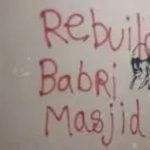 Rebuild
Babri
Masjid